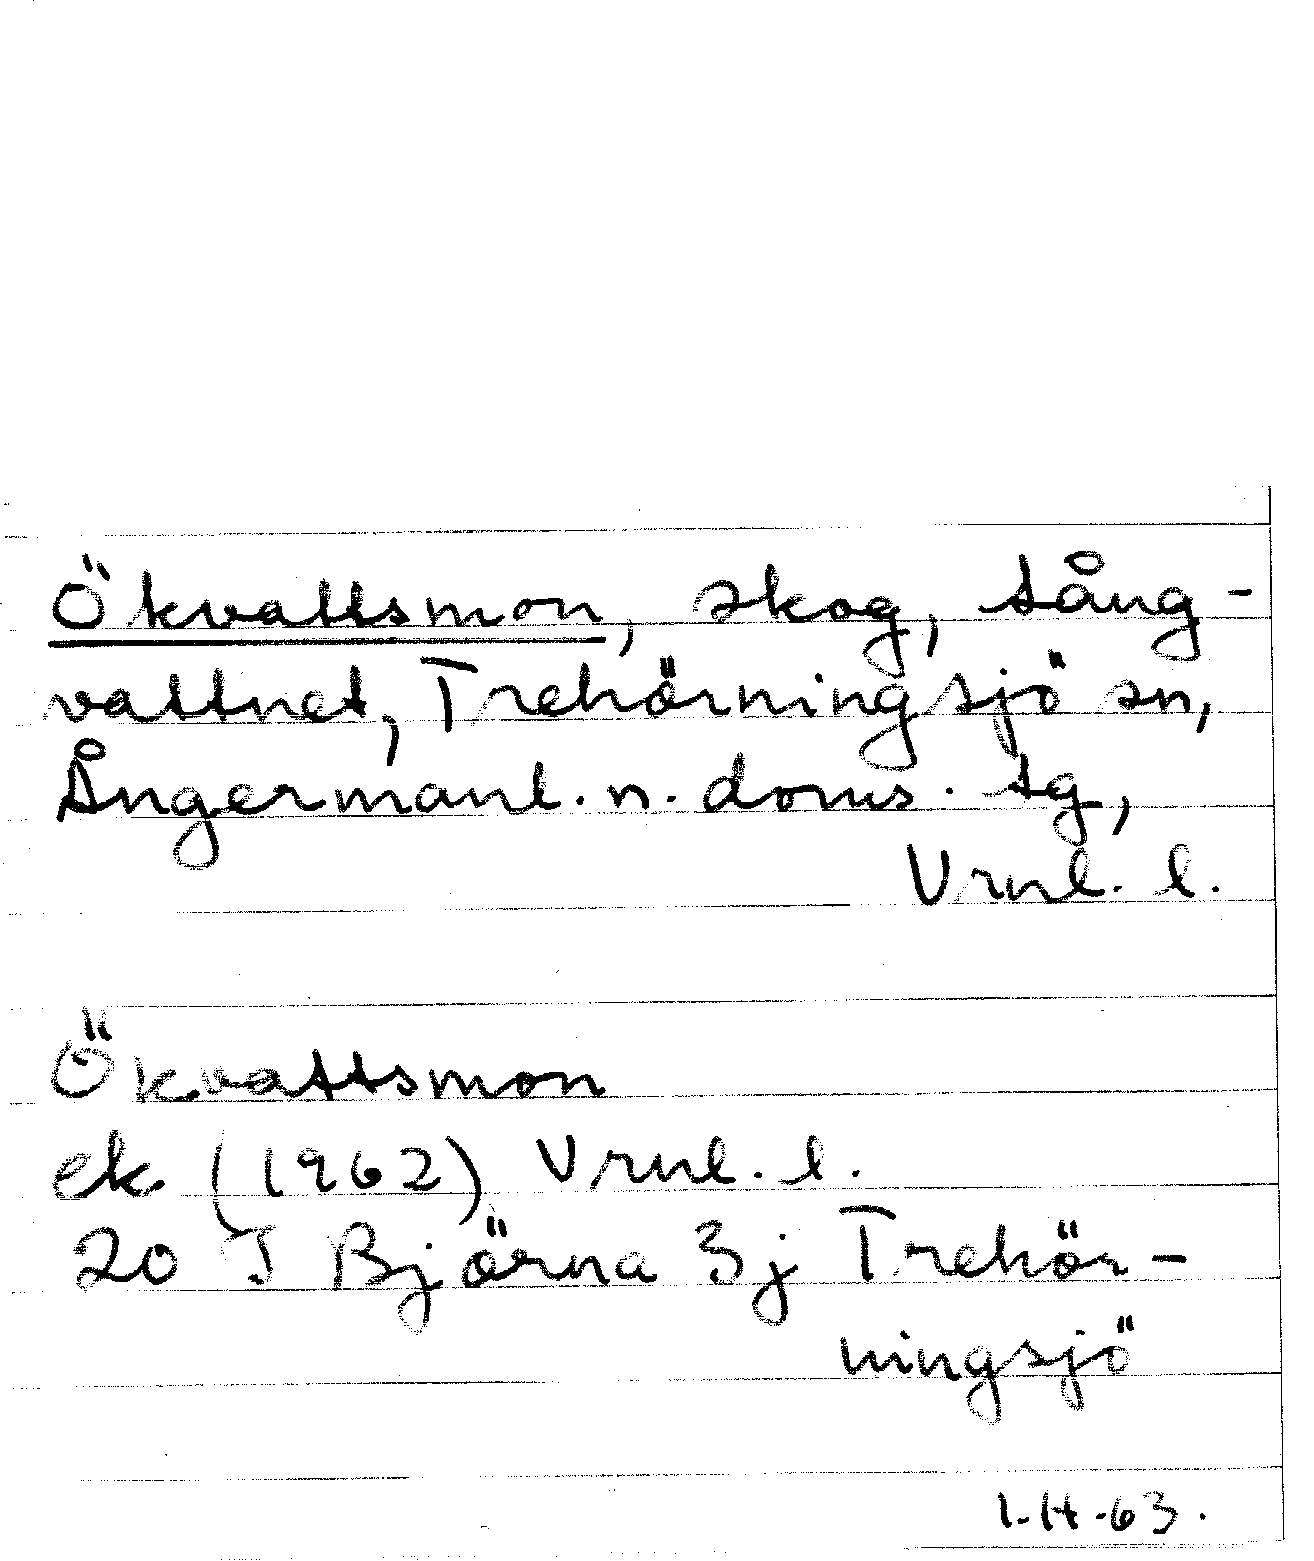 Ökvattsmon, skog, tång-
vattnet, Trehörningsjö sn,
Ångermanl. n. doms. tg,
Vrnl. l.
Ökvattsmon
ek (1962) Vrnl. l.
20 J Björna 3j Trehör-
ningsjö